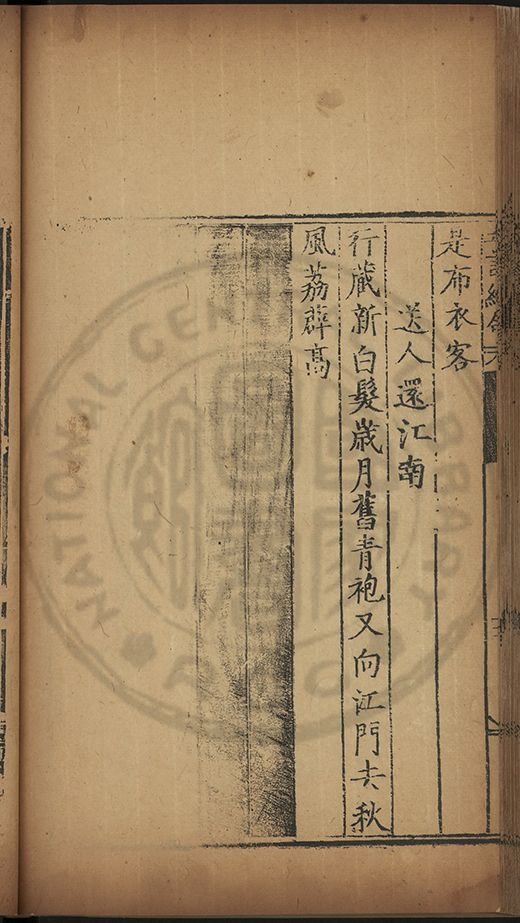 是布衣客
送人還江南
行藏新白髮歲月舊青袍又向江門去秋
風荔薜高